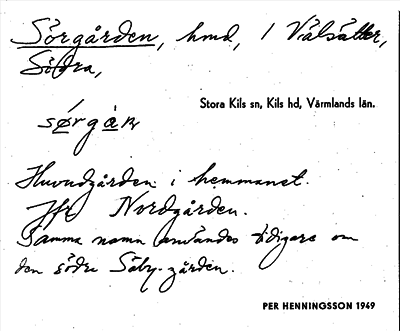 Sörgården, hmd, i Vålsätter,
Södra,
Stora Kils sn, Kils hd, Värmlands län.
Huvudgården i hemmanet.
Jfr Nordgården.
Samma namn användes tidigare om
den södre Säby-gården.
PER HENNINGSSON 1949